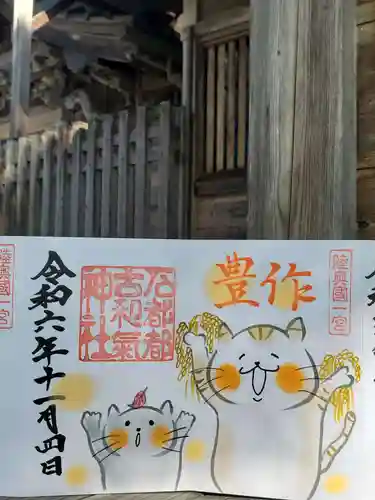 陸奥國一宮
豊作
石都都
古和氣
神社
令和六年十一月四日
陸奥國一宮